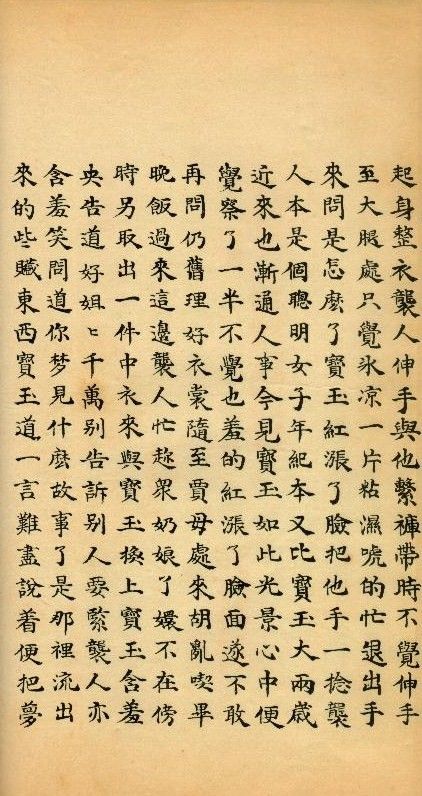 起身整衣襲人伸手與他繫褲帶時不覺伸手
至大腿處只覺氷凉一片粘濕唬的忙退出手
來問是怎麽了寶玉紅漲了臉把他手一捻襲
人本是個聰明女子年紀本又比寶玉大兩歲
近來也漸通人事今見寶玉如此光景心中便
覺察了一半不覺也羞的紅漲了臉面遂不敢
再問仍舊理好衣裳隨至賈母處來胡亂喫畢
晚飯過來這邊襲人忙趂衆奶娘了嬛不在傍
時另取出一件中衣來與寶玉換上寶玉含羞
央告道好姐〻千萬别告訴别人要緊襲人亦
含羞笑問道你梦見什麽故事了是那裡流出
來的些贜東西寶玉道一言難盡說着便把夢